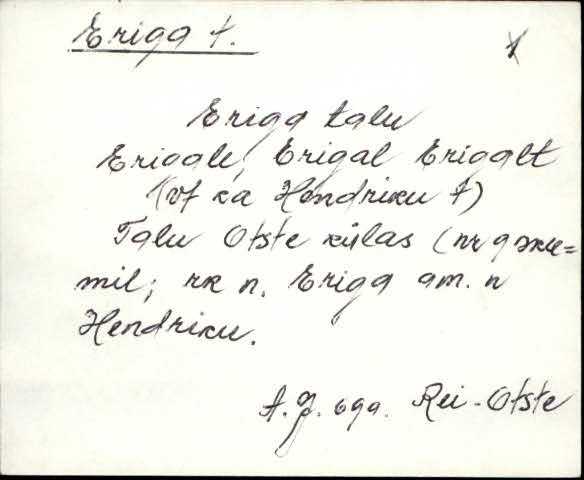 Erigg t.
Erigg talu
Eriggle, Erigal Eriggelt
(vt ka Hendriku t)
Talu Otste külas (nr 9
mil; rk n. Erigg am. n
Hendriku.
A. J. Rei-Otste